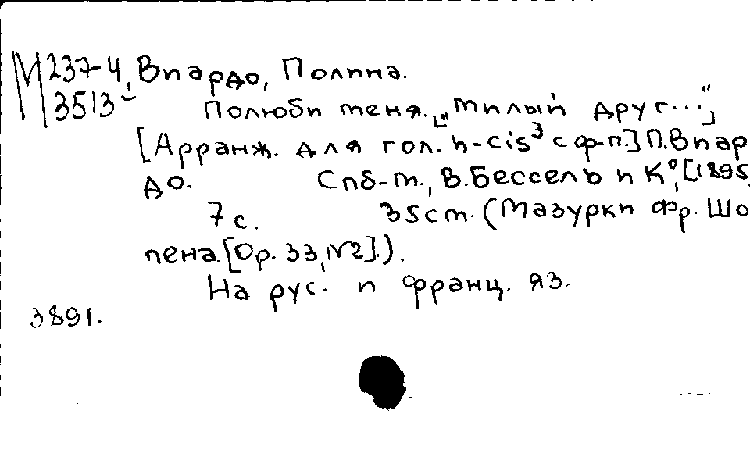 М 237-4, Виардо, Полина.
3513
Полюби меня. ["Милый друг..."]
[Арранж. для гол. h-cis³ с ф-п.] П.Виар
до. Спб-м., В.Бессель и К⁰, [1895
7 с. 35 cm. (Мазурки Фр. Шо
пена. [Op. 33, №2].).
На рус. и франц. яз.
3891.